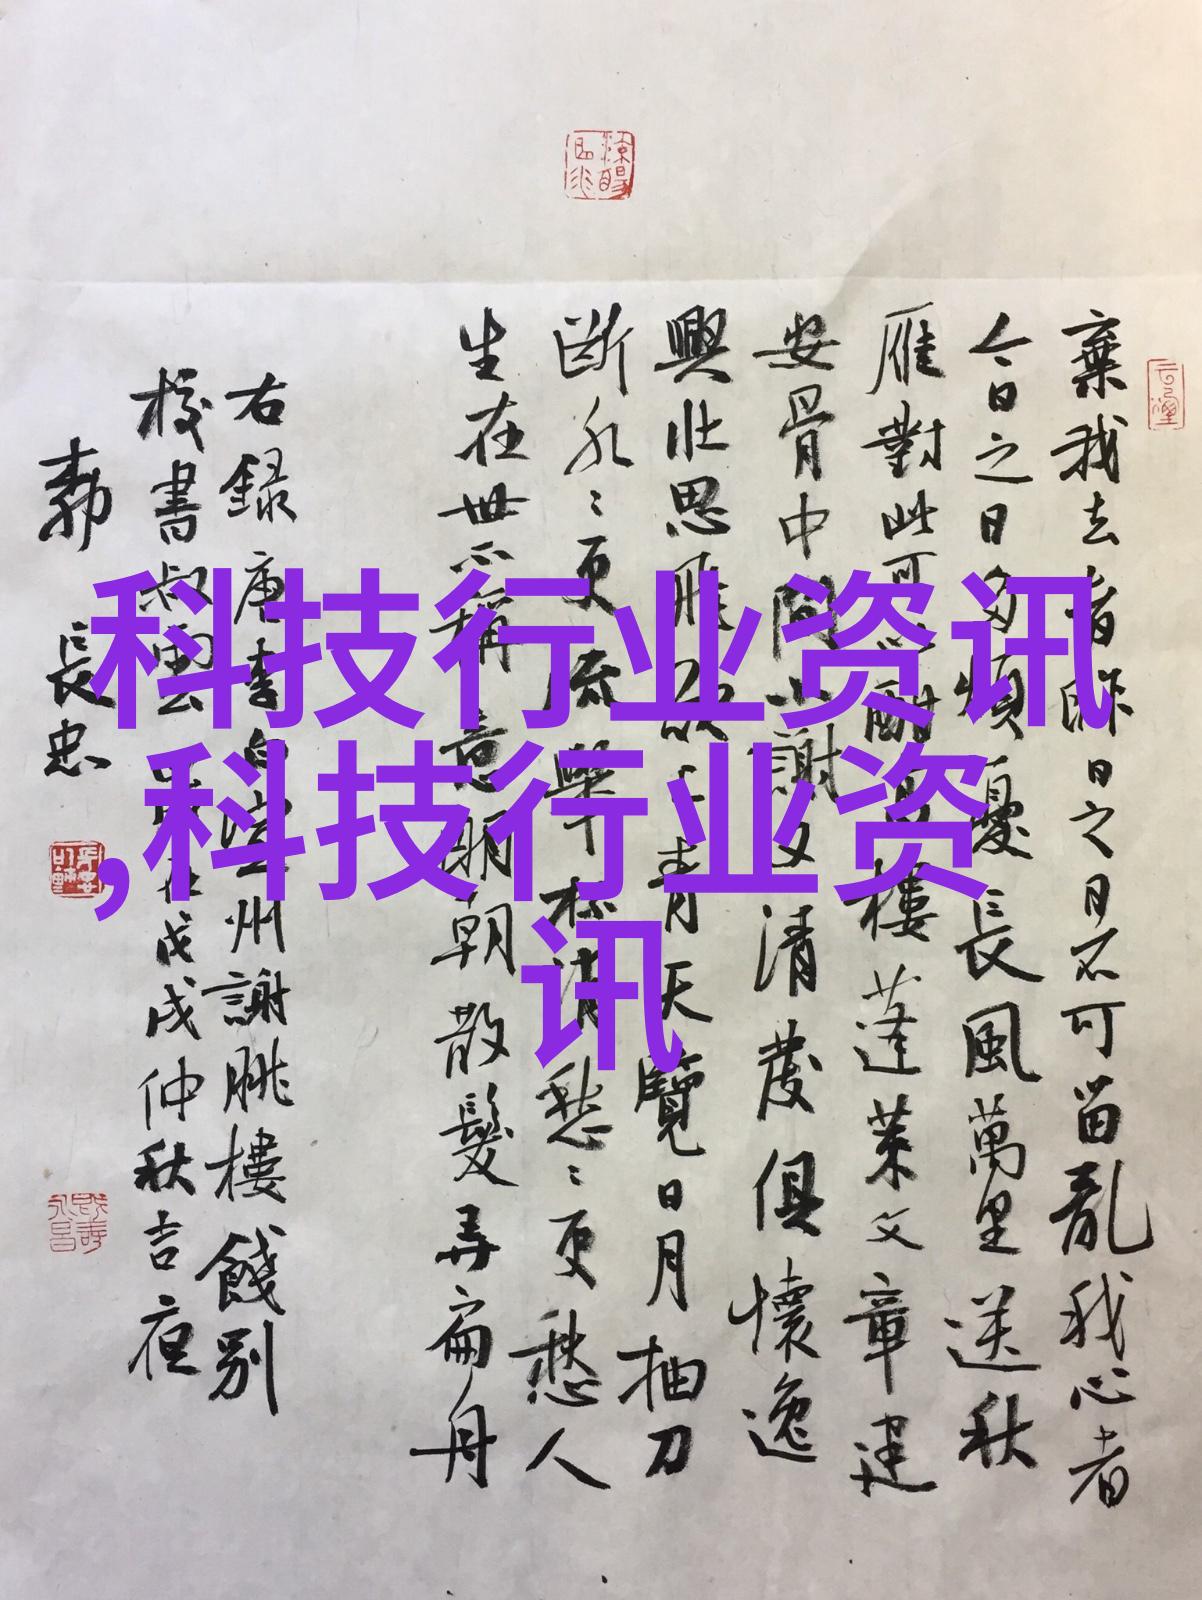 科技行业资讯
,科技行业资
讯
棄我去者昨日之日不可留亂我心者
今日之日多煩憂長風萬里送秋
雁對此可以酣高樓蓬萊文章建
安骨中間小謝又清發俱懷逸
興壯思飛欲上青天覽日月抽刀
斷水々更流舉杯消愁々更愁人
生在世不稱意明朝散髮弄扁舟
右録唐李白宣州謝朓樓餞別
校書叔雲歲在戊戌仲秋吉夜
長忠